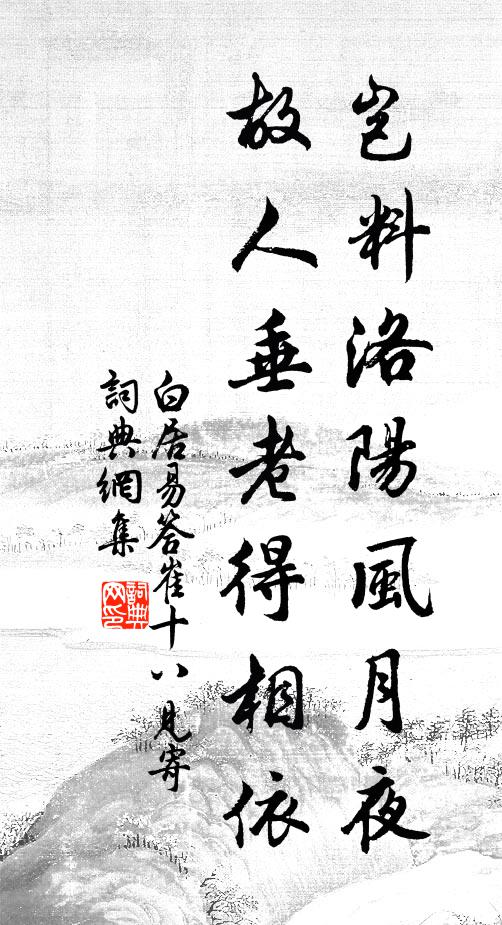 豈料洛陽風月夜
故人垂老得相依
白居易答崔十八見寄
詞典網集
詞典網印